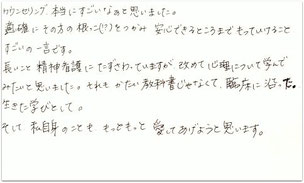 カウンセリング 本当にすごいなぁと思いました。
適確にその方の根っこ(?)をつかみ 安心できるところまでもっていけること
すごいの一言です。
長いこと 精神看護に たずさわっていますが 改めて心理について学んで
みたいと思いました。それも かたい教科書じゃなくて、臨床に沿った。
生きた学びとして。
そして 私自身のことも もっともっと 愛してあげようと思います。